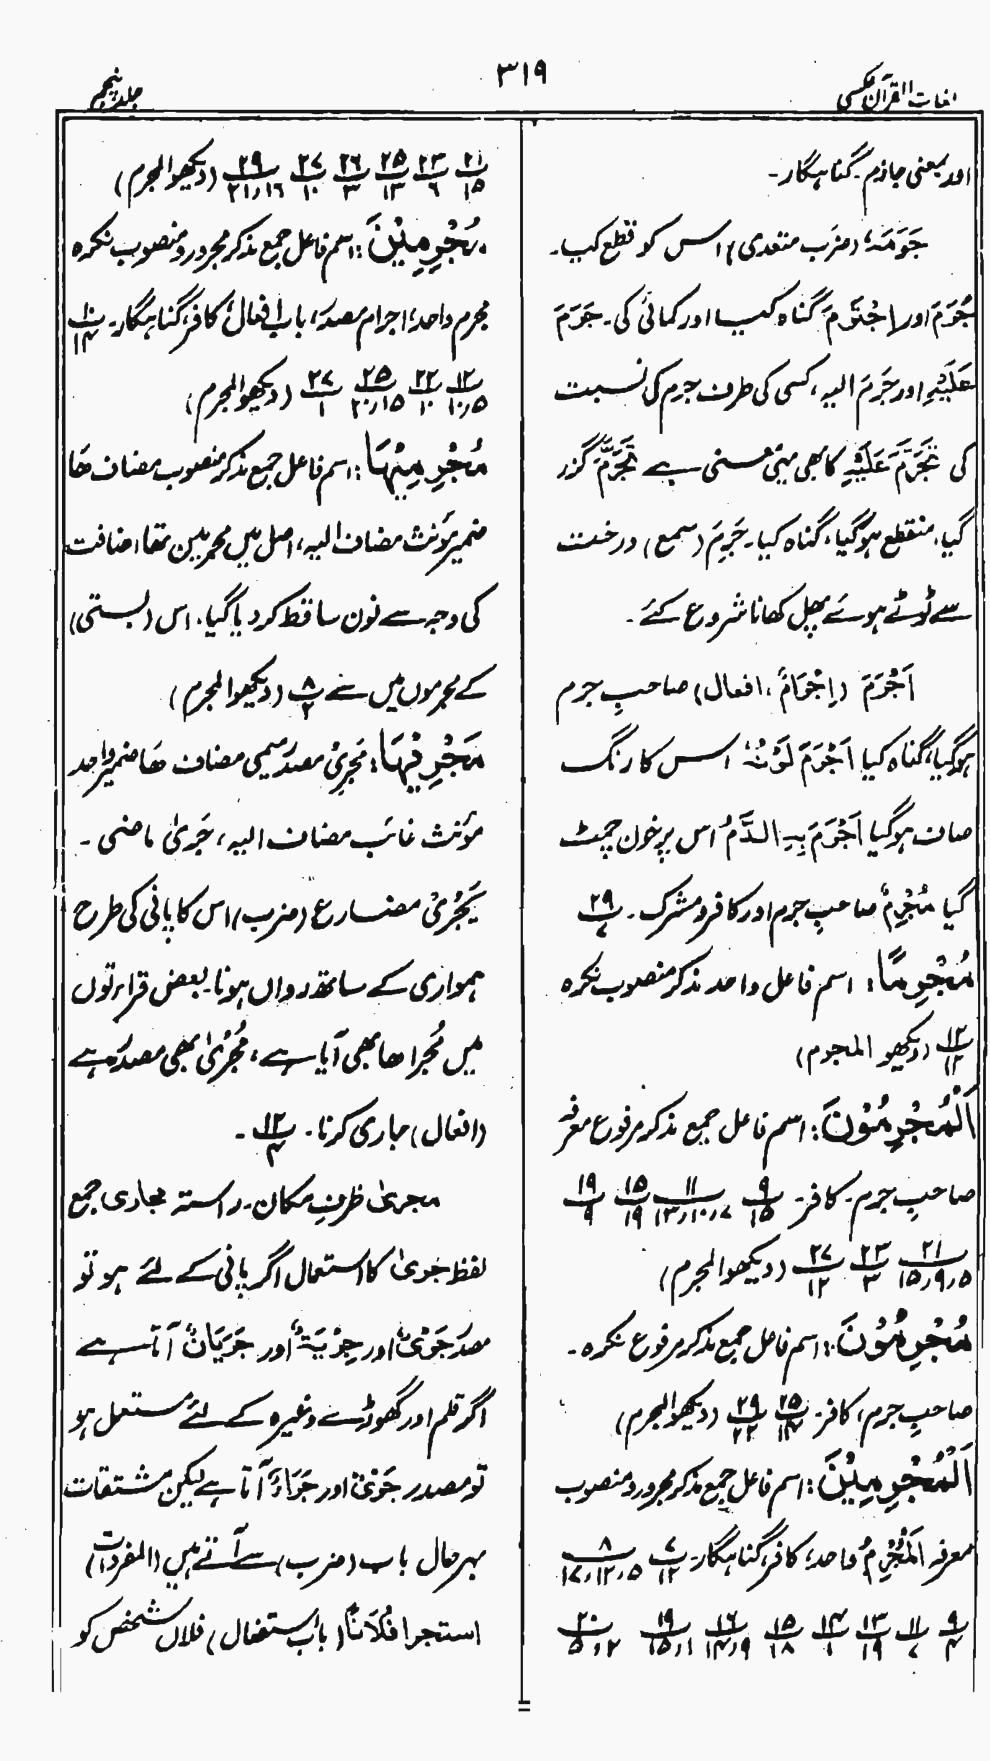 لغات القرآن عکسی
۳۱۹
جلد پنجم
اور بمعنی جازم۔ گناہگار۔
جَرَمَہٗ (ضرَب متعدی) اس کو قطع کیا۔
جَرَمَ اور اِجْتَرَمَ گناہ کیا اور کمائی کی۔ جَرَمَ
عَلَیْہِ اور جَرَمَ الیہ، کسی کی طرف جرم کی نسبت
کی تَجَرَّمَ عَلَیْہِ کا بھی یہی معنی ہے تَجَرَّمَ گزر
گیا، منقطع ہوگیا، گناہ کیا۔ جَرِمَ (سمع) درخت
سے ٹوٹے ہوئے پھل کھانا شروع کئے۔
اَجْرَمَ (اِجْرَامٌ، افعال) صاحبِ جرم
ہوگیا، گناہ کیا اَجْرَمَ لَوْنُہٗ اس کا رنگ
صاف ہوگیا اَجْرَمَ بِہِ الدَّمُ اس پر خون چمٹ
گیا مُجْرِمٌ صاحبِ جرم اور کافر و مشرک۔ ۲۹/۷
مُجْرِمًا: اسم فاعل واحد مذکر منصوب نکرہ
۱۲/۱۲ (دیکھو المجرم)
اَلْمُجْرِمُوْنَ: اسم فاعل جمع مذکر مرفوع معرفہ
صاحبِ جرم۔ کافر۔ ۹/۱۵ ۱۱/۷،۱۰،۱۳ ۱۵/۱۹ ۱۹/۹
۲۱/۵،۹،۱۵ ۲۳/۳ ۲۷/۱۲ (دیکھو المجرم)
مُجْرِمُوْنَ: اسم فاعل جمع مذکر مرفوع نکرہ۔
صاحبِ جرم، کافر۔ ۲۵/۱۴ ۲۹/۲۲ (دیکھو المجرم)
اَلْمُجْرِمِیْنَ: اسم فاعل جمع مذکر مجرور و منصوب
معرفہ اَلْمُجْرِمُ واحد، کافر، گناہگار۔ ۷/۱۲ ۸/۵،۱۲،۱۷
۹/۴ ۱۱/۷ ۱۳/۱۹ ۱۴/۱ ۱۵/۱۸ ۱۶/۹،۱۴ ۱۹/۱،۱۵ ۲۰/۲،۵
۲۱/۱۵ ۲۳/۶ ۲۵/۱۳ ۲۶/۳ ۲۷/۱۰ ۲۹/۱۶،۲۱ (دیکھو المجرم)
مُجْرِمِیْنَ: اسم فاعل جمع مذکر مجرور و منصوب نکرہ
مجرم واحد، اجرام مصدر، باب افعال، کافر، گناہگار۔ ۱۰/۱۴
۱۲/۵،۱۰ ۲۲/۱۰ ۲۵/۱۵،۲۰ ۲۷/۱ (دیکھو المجرم)
مُجْرِمِیْہَا: اسم فاعل جمع مذکر منصوب مضاف ھَا
ضمیر مؤنث مضاف الیہ، اصل میں مجرمین تھا، اضافت
کی وجہ سے نون ساقط کردیا گیا۔ اس (بستی)
کے مجرموں میں سے ۸/۲ (دیکھو المجرم)
مَجْرِٖىہَا: مَجْرِیْ مصدر میمی مضاف ھَا ضمیر واحد
مؤنث غائب مضاف الیہ، جَرىٰ ماضی۔
یَجْرِیْ مضارع (ضرب) اس کا پانی کی طرح
ہمواری کے ساتھ رواں ہونا۔ بعض قراءتوں
میں مُجرا ھا بھی آیا ہے، مُجْرٰی بھی مصدر ہے
(افعال) جاری کرنا۔ ۱۲/۴۔
مجریٰ ظرفِ مکان۔ راستہ مجاری جمع
لفظ جریٰ کا استعمال اگر پانی کے لئے ہو تو
مصدر جَرْیٌ اور جِرْیَۃٌ اور جَرَیَانٌ آتا ہے
اگر قلم اور گھوڑے وغیرہ کے لئے مستعمل ہو
تو مصدر جَرْیٌ اور جَرَاءٌ آتا ہے لیکن مشتقات
بہرحال باب (ضرب) سے آتے ہیں (المفردات)
استجرا فُلَاناً (باب استفعال) فلاں شخص کو